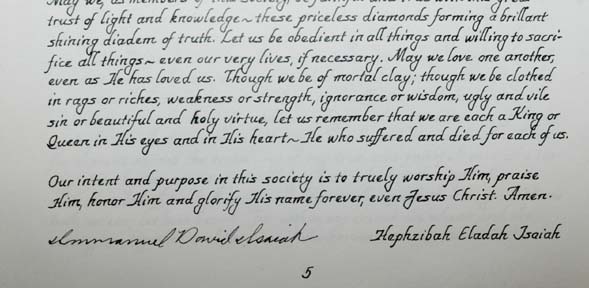 May we, as members of this society, be faithful and true with this great
trust of light and knowledge~ these priceless diamonds forming a brillant
shining diadem of truth. Let us be obedient in all things and willing to sacri-
fice all things~ even our very lives, if necessary. May we love one another,
even as He has loved us. Though we be of mortal clay; though we be clothed
in rags or riches, weakness or strength, ignorance or wisdom, ugly and vile
sin or beautiful and holy virtue, let us remember that we are each a King or
Queen in His eyes and in His heart~ He who suffered and died for each of us.
Our intent and purpose in this society is to truely worship Him, praise
Him, honor Him and glorify His name forever, even Jesus Christ. Amen.
Immanuel David Isaiah Hephzibah Eladah Isaiah
5